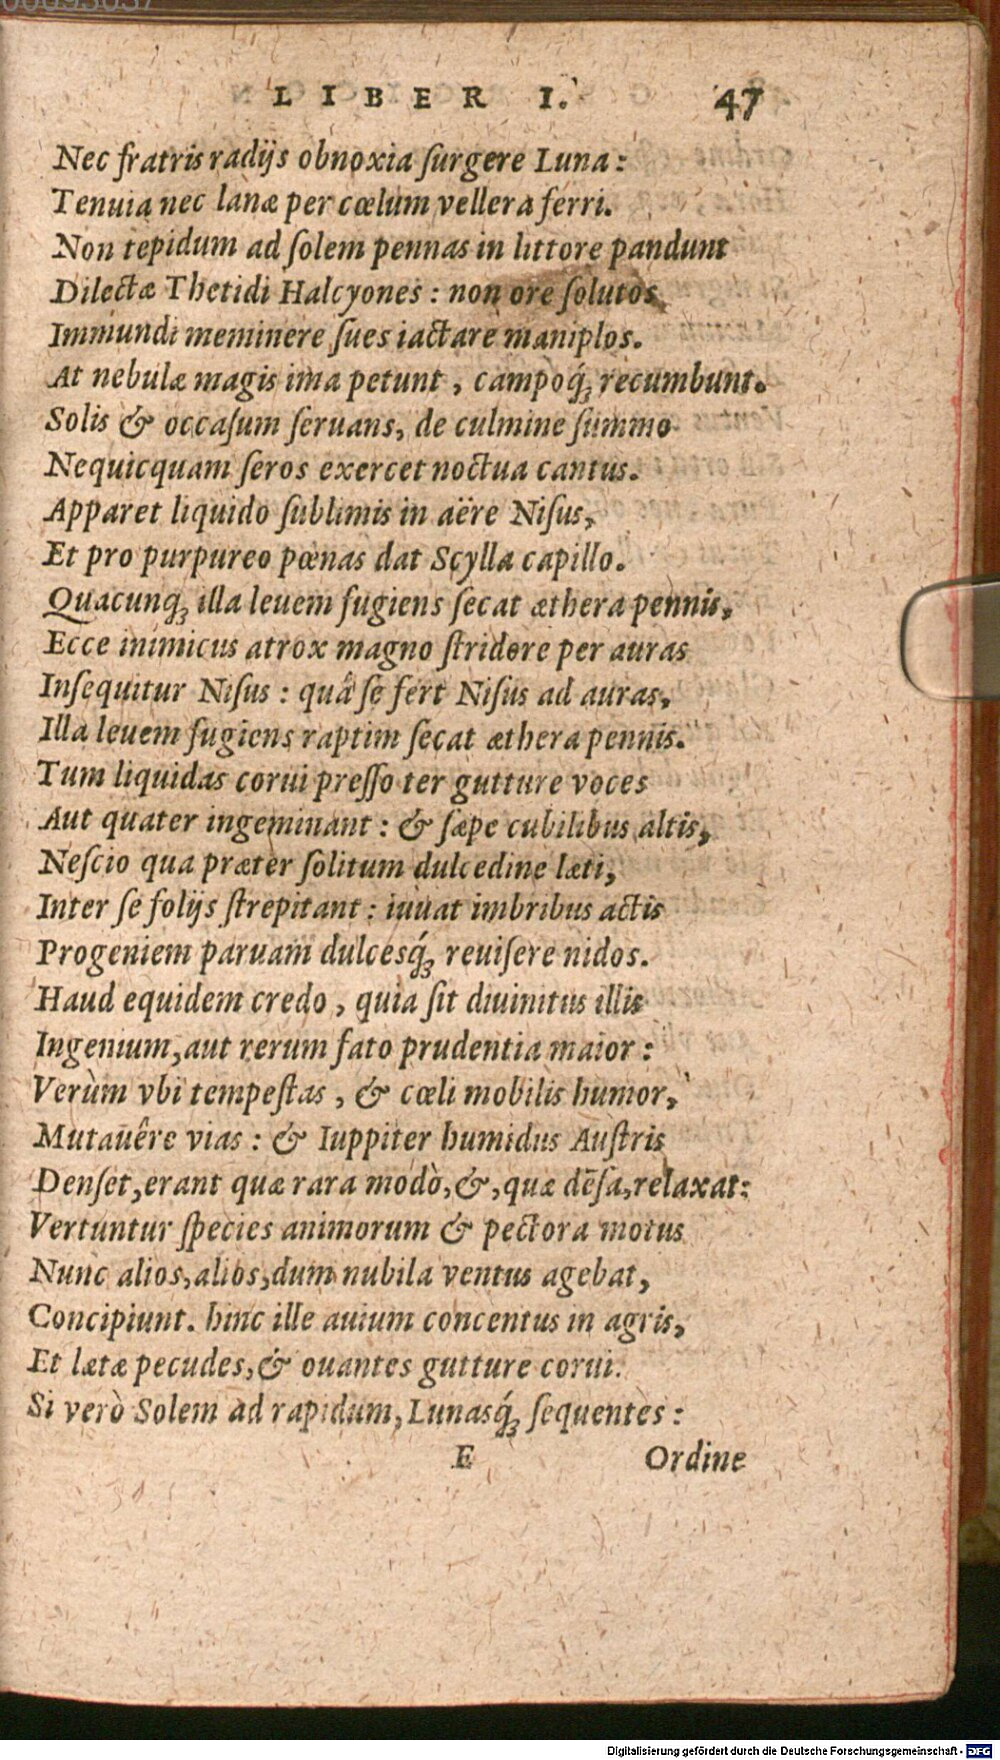 LIBER I. 47
Nec fratris radijs obnoxia ſurgere Luna:
Tenuia nec lanæ per cœlum vellera ferri.
Non tepidum ad ſolem pennas in littore pandunt
Dilectæ Thetidi Halcyones: non ore ſolutos
Immundi meminere ſues iactare maniplos.
At nebulæ magis ima petunt, campoq́ꝫ recumbunt.
Solis & occaſum ſeruans, de culmine ſummo
Nequicquam ſeros exercet noctua cantus.
Apparet liquido ſublimis in aëre Niſus,
Et pro purpureo pœnas dat Scylla capillo.
Quacunqꝫ illa leuem fugiens ſecat æthera pennis,
Ecce inimicus atrox magno ſtridore per auras
Inſequitur Niſus: quâ ſe fert Niſus ad auras,
Illa leuem fugiens raptim ſecat æthera pennis.
Tum liquidas corui preſſo ter gutture voces
Aut quater ingeminant: & ſæpe cubilibus altis,
Neſcio qua præter ſolitum dulcedine læti,
Inter ſe folijs ſtrepitant: iuuat imbribus actis
Progeniem paruam dulcesq́ꝫ reuiſere nidos.
Haud equidem credo, quia ſit diuinitus illis
Ingenium, aut rerum fato prudentia maior:
Verùm vbi tempeſtas, & cœli mobilis humor,
Mutauêre vias: & Iuppiter humidus Auſtris
Denſet, erant quæ rara modò, &, quæ dēſa, relaxat:
Vertuntur ſpecies animorum & pectora motus
Nunc alios, alios, dum nubila ventus agebat,
Concipiunt. hinc ille auium concentus in agris,
Et lætæ pecudes, & ouantes gutture corui.
Si verò Solem ad rapidum, Lunasq́ꝫ ſequentes:
E Ordine
Digitalisierung gefördert durch die Deutsche Forschungsgemeinschaft - DFG